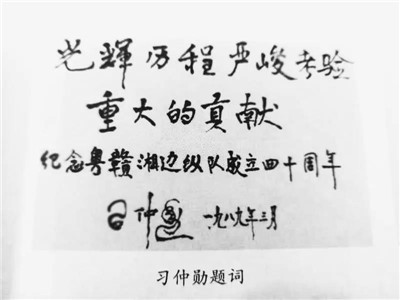 光輝历程严峻考验
重大的貢献
纪念粤赣湘边纵队成立四十周年
习仲勋 一九八九年三月
习仲勋题词